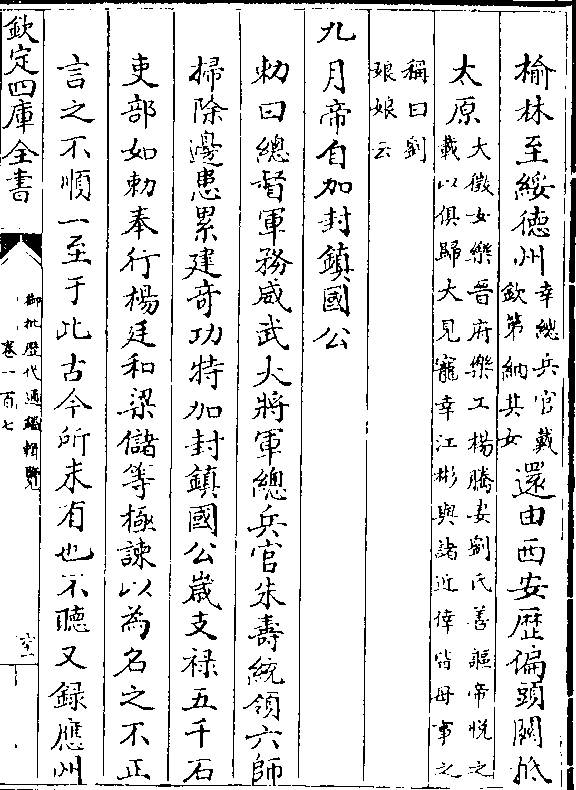 榆林至綏德州幸總兵官戴
欽第納其女還由西安歴偏頭關抵
太原大徵女樂晋府樂工楊騰妻劉氏善謳帝悅之
載以俱歸大見寵幸江彬與諸近倖皆母事之
稱曰劉
娘娘云
九月帝自加封鎮國公
勅曰總督軍務威武大將軍總兵官朱壽統領六師
掃除邊患累建奇功特加封鎮國公嵗支禄五千石
吏部如勅奉行楊廷和梁儲等極諫以為名之不正
言之不順一至于此古今所未有也不聴又録應州
欽定四庫全書
御批歴代通鑑輯覽
卷一百七